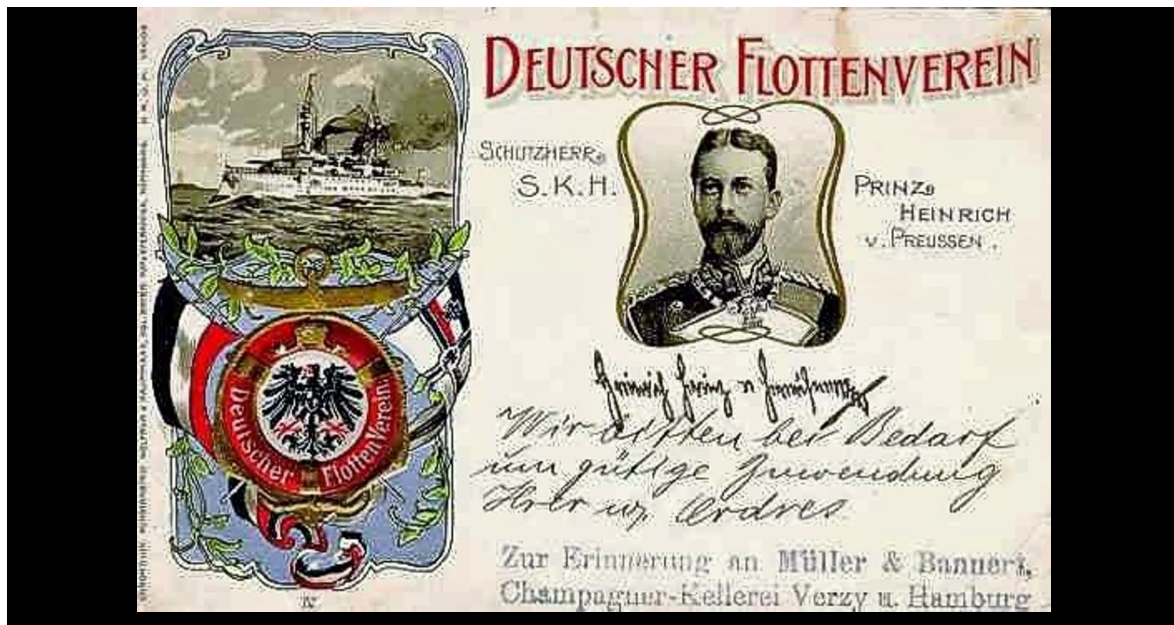 DEUTSCHER FLOTTENVEREIN
SCHUTZHERR
S.K.H.
PRINZ
HEINRICH
v. PREUSSEN.
Deutscher Flotten Verein.
Heinrich Prinz v Preussen
Wir bitten bei Bedarf
um gütige Zuwendung
Ihrer Ordres
Zur Erinnerung an Müller & Bannert,
Champagner-Kellerei Verzy u. Hamburg
IV